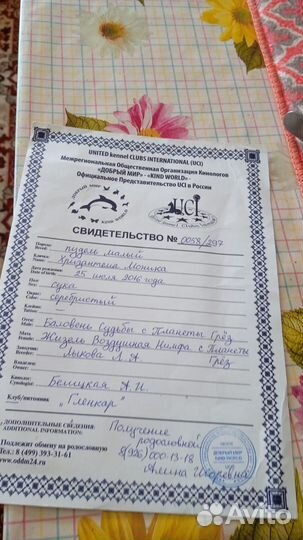 UNITED kennel CLUBS INTERNATIONAL (UCI)
Межрегиональная Общественная Организация Кинологов
«ДОБРЫЙ МИР» - «KIND WORLD»
Официальное Представительство UCI в России
ДОБРЫЙ МИР
KIND WORLD
UCI
СВИДЕТЕЛЬСТВО № 0058/297
Порода:
Breed: пудель малый
Кличка:
Name: Хризантема Моника
Дата рождения:
Date of birth: 25 июля 2016 года
Пол:
Sex: сука
Окрас:
Color: серебристый
Клеймо:
Tattoo: —
Отец:
Male: Баловень Судьбы с Планеты Грёз
Мать:
Female: Жизель Воздушная Нимфа с Планеты
Грёз
Заводчик:
Breeder: Лыкова Л. А.
Владелец:
Owner:
Кинолог:
Cynologist: Белицкая А. И.
Клуб/питомник "Гленкар"
ДОПОЛНИТЕЛЬНЫЕ СВЕДЕНИЯ:
ADDITIONAL INFORMATION: Получение
родословной
Подлежит обмену на родословную
Тел.: 8 (499) 393-31-61
8(926)000-13-18
www.oddm24.ru
Алина Игоревна
Avito